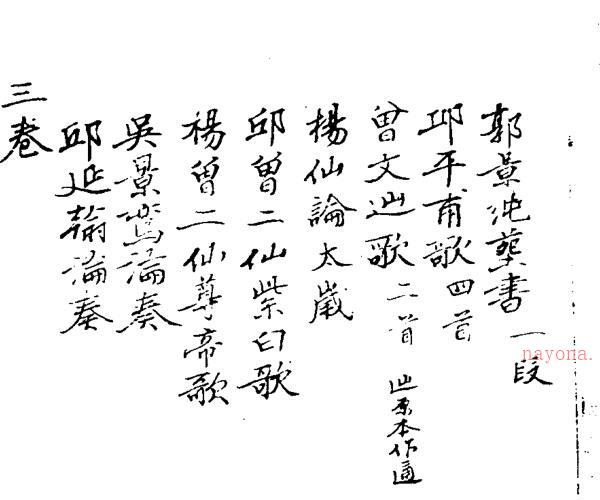 郭景純葬書 一段
邱平甫歌四首
曾文辿歌二首 辿原本作遄
楊仙論太歲
邱曾二仙紫白歌
楊曾二仙尊帝歌
吳景鸞論奏
邱延翰論奏
三卷
nayona.